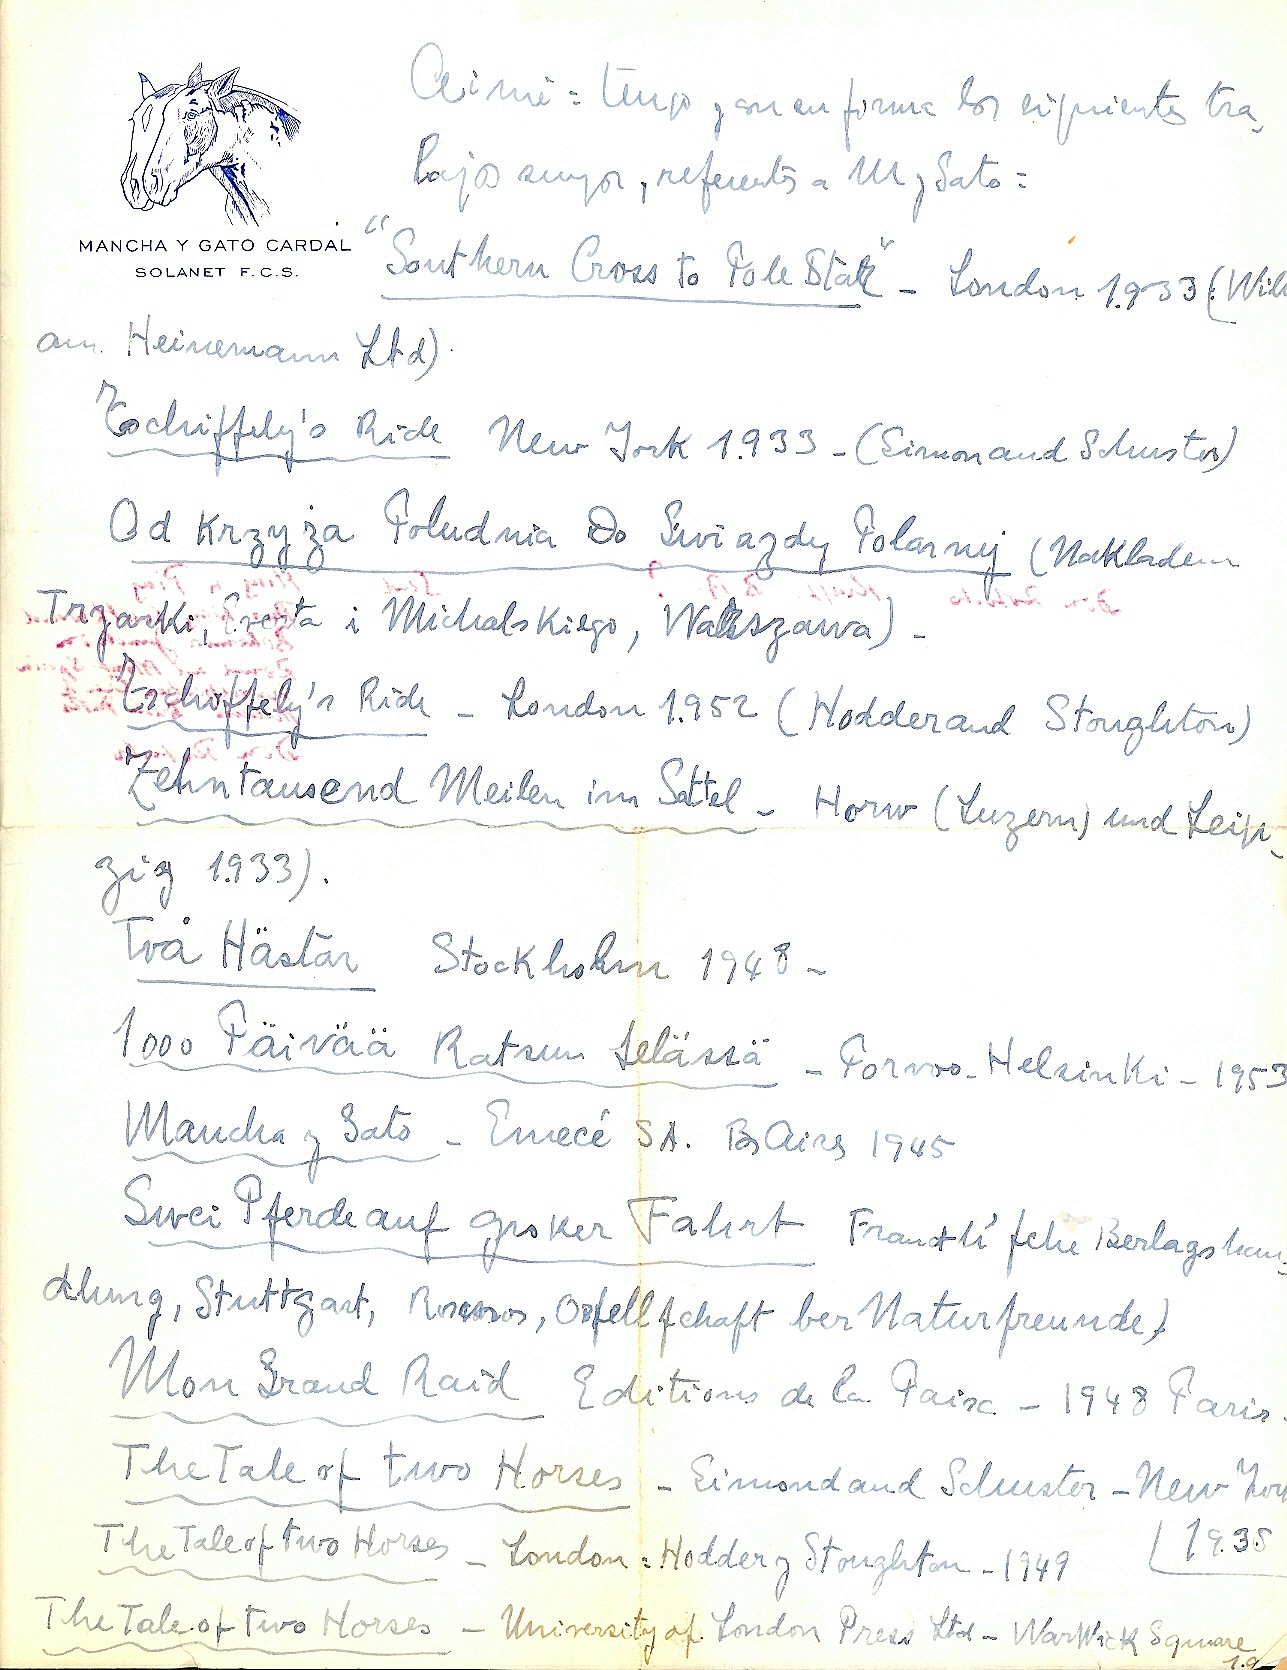 MANCHA Y GATO CARDAL
SOLANET F.C.S.
Aimé: tengo y son en forma los siguientes tra-
bajos suyos, referentes a M y Gato =
"Southern Cross to Pole Star" - London 1.933 (Willi
am Heinemann Ltd).
Tschiffely's Ride New York 1.933 - (Simon and Schuster)
Od Krzyża Poludnia Do Gwiazdy Polarnej (Nakladem
Trzaski, Everta i Michalskiego, Warszawa) -
Tschiffely's Ride - London 1.952 (Hodder and Stoughton)
Zehntausend Meilen im Sattel - Horw (Luzern) und Leip-
zig 1.933).
Två Hästar Stockholm 1948 -
1000 Päivää Ratsun Selässä - Porvoo - Helsinki - 1953
Mancha y Gato - Emecé SA. Bs Aires 1945
Swei Pferde auf groker Fahrt Franckh'fche Berlagshan-
dlung, Stuttgart, Kosmos, Gefellfchaft ber Naturfreunde)
Mon Grand Raid Editions de la Paix - 1948 Paris.
The Tale of two Horses - Simond and Schuster - New York
(1935
The Tale of two Horses - London = Hodder y Stoughton - 1949
The Tale of two Horses - University of London Press Ltd - Warwick Square
19